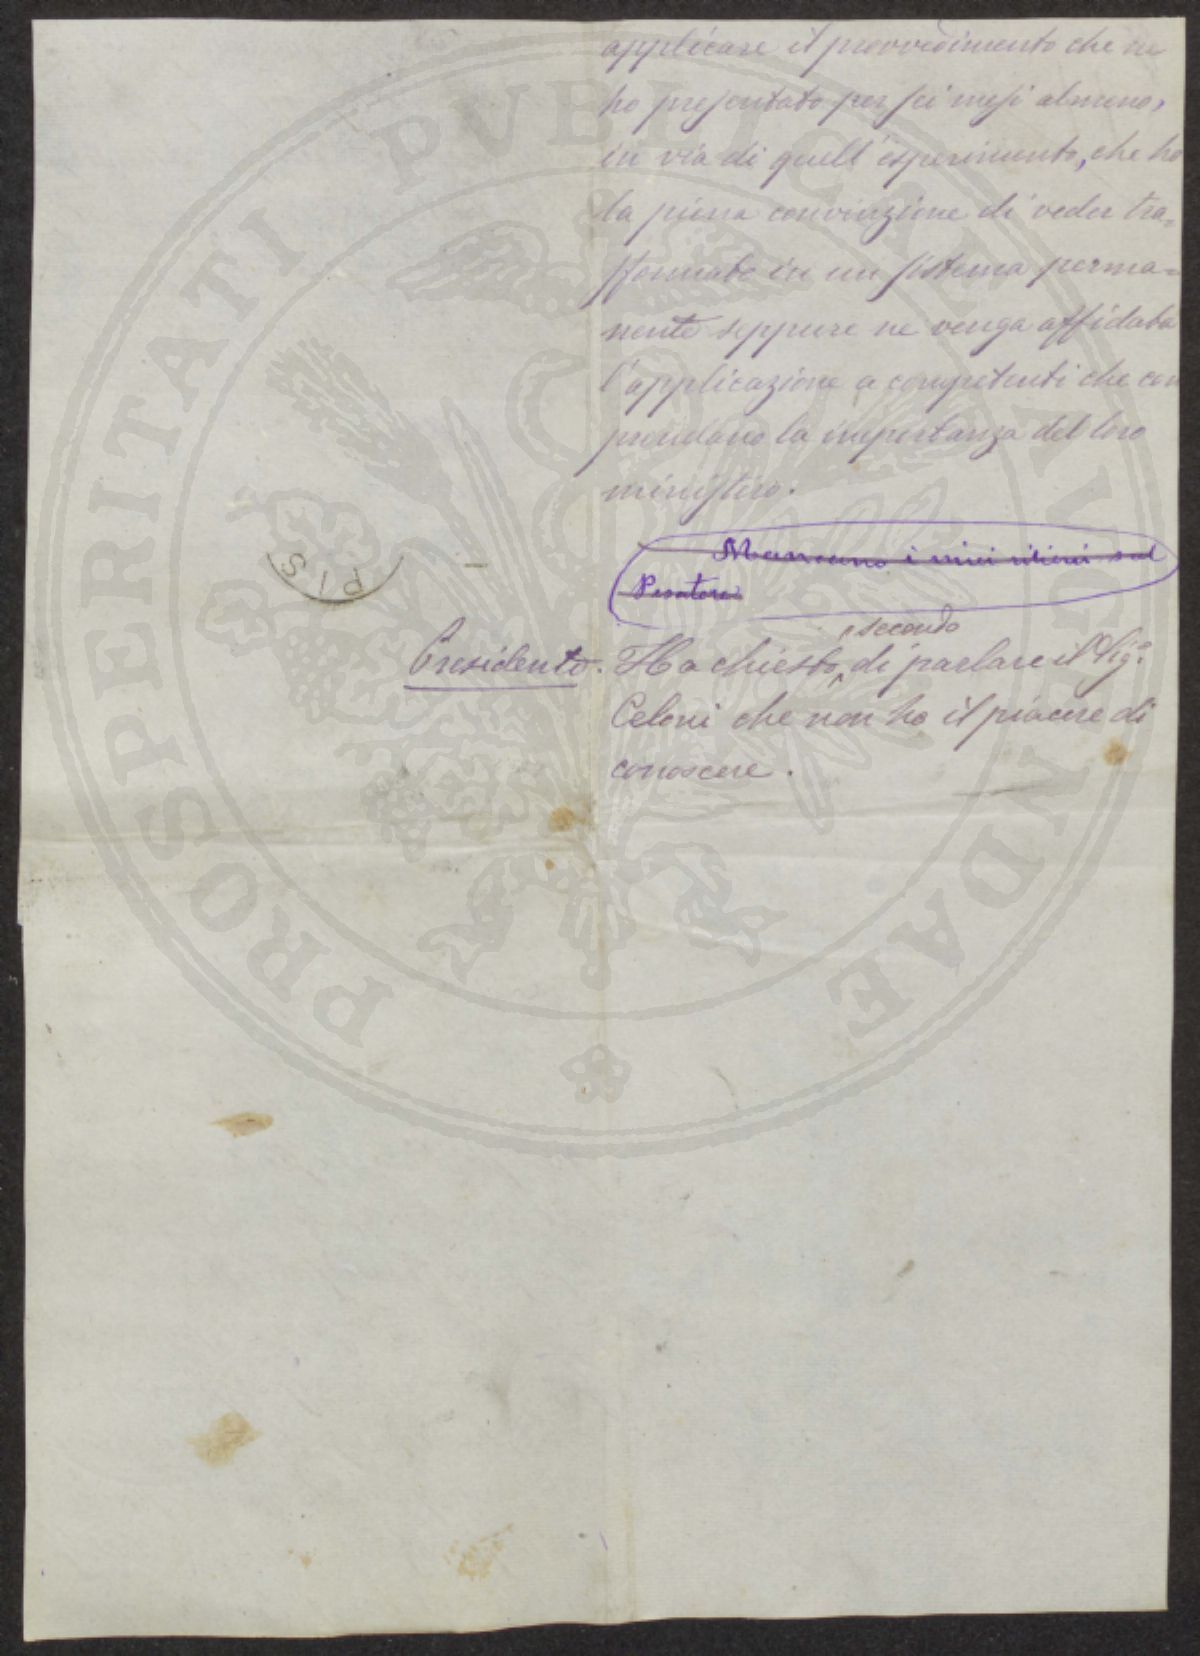 applicare il provvedimento che ne
ho presentato per sei mesi almeno,
in via di quell'esperimento, che ho
la piena convinzione di veder tra=
sformato in un sistema perma=
nente seppure ne venga affidata
l'applicazione a competenti che com
prendano la importanza del loro
ministero.
Mancano i miei rilievi sul
Pesatore
secondo
Presidente. Ha chiesto di parlare il Sig.
Celoni che non ho il piacere di
conoscere.
PIS
PROSPERITATI PUBLICAE AUGENDAE